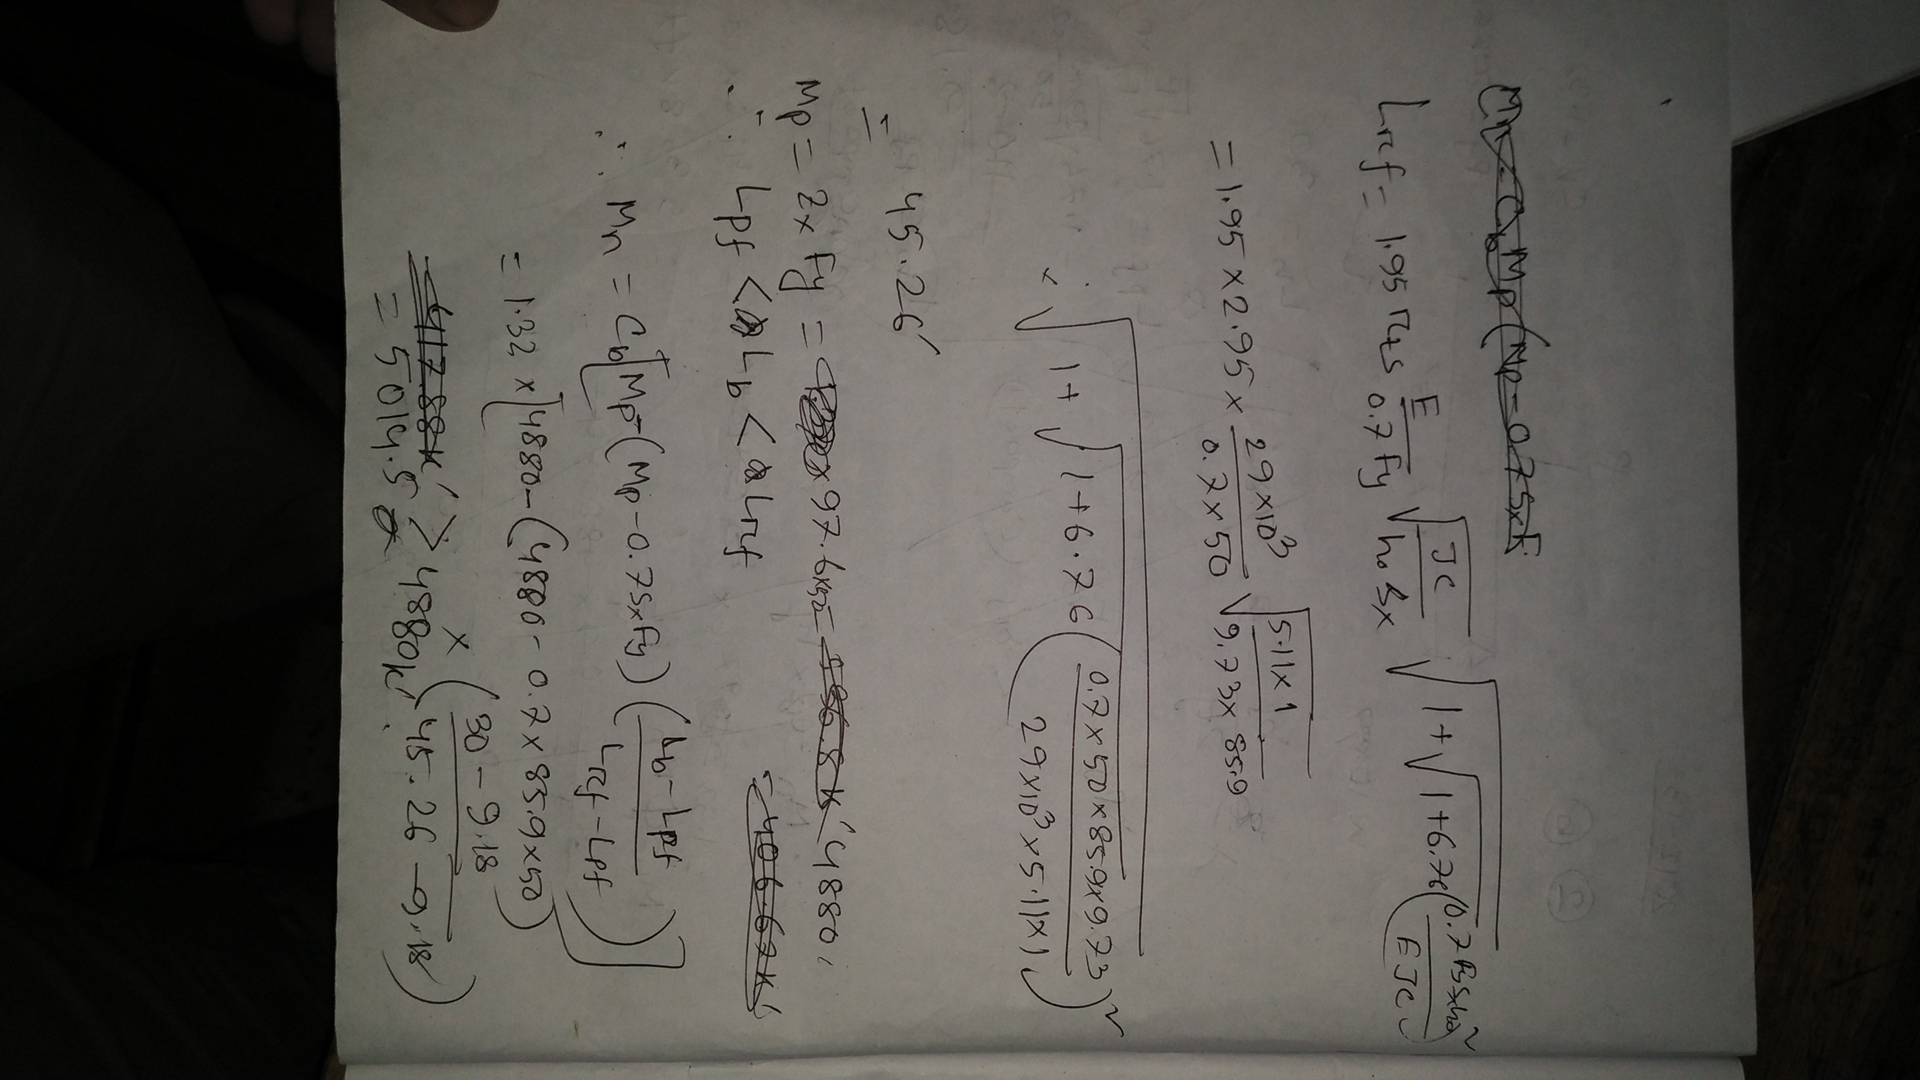 Lrcf = 1.95 rts E/0.7Fy √(Jc/hoSx) √(1+√(1+6.76(0.7FySxho/EJc)²
= 1.95 × 2.95 × 29×10³/0.7×50 √(5.11×1/9.73×85.9)
× √(1+√(1+6.76(0.7×50×85.9×9.73/29×10³×5.11×1)²
= 45.26'
Mp = Zx Fy = 97.6×50 = 4880,
∴ Lpf < Lb < Lrf
∴ Mn = Cb[Mp-(Mp-0.7SxFy)(Lb-Lpf/Lrf-Lpf)]
= 1.32 × [4880-(4880-0.7×85.9×50)
× (30-9.18/45.26-9.18)
> 4880k'.
= 5014.5